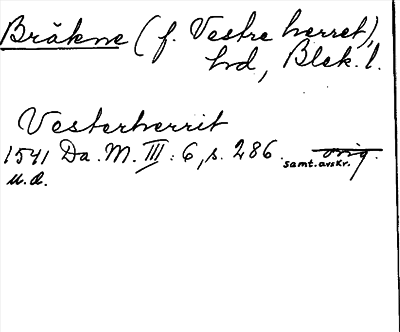 Bräkne (f. Vestre herret),
hd, Blek. l.
Vesterherrit
1541 Da. M. III: 6, s. 286. orig.
samt. avskr.
u. d.